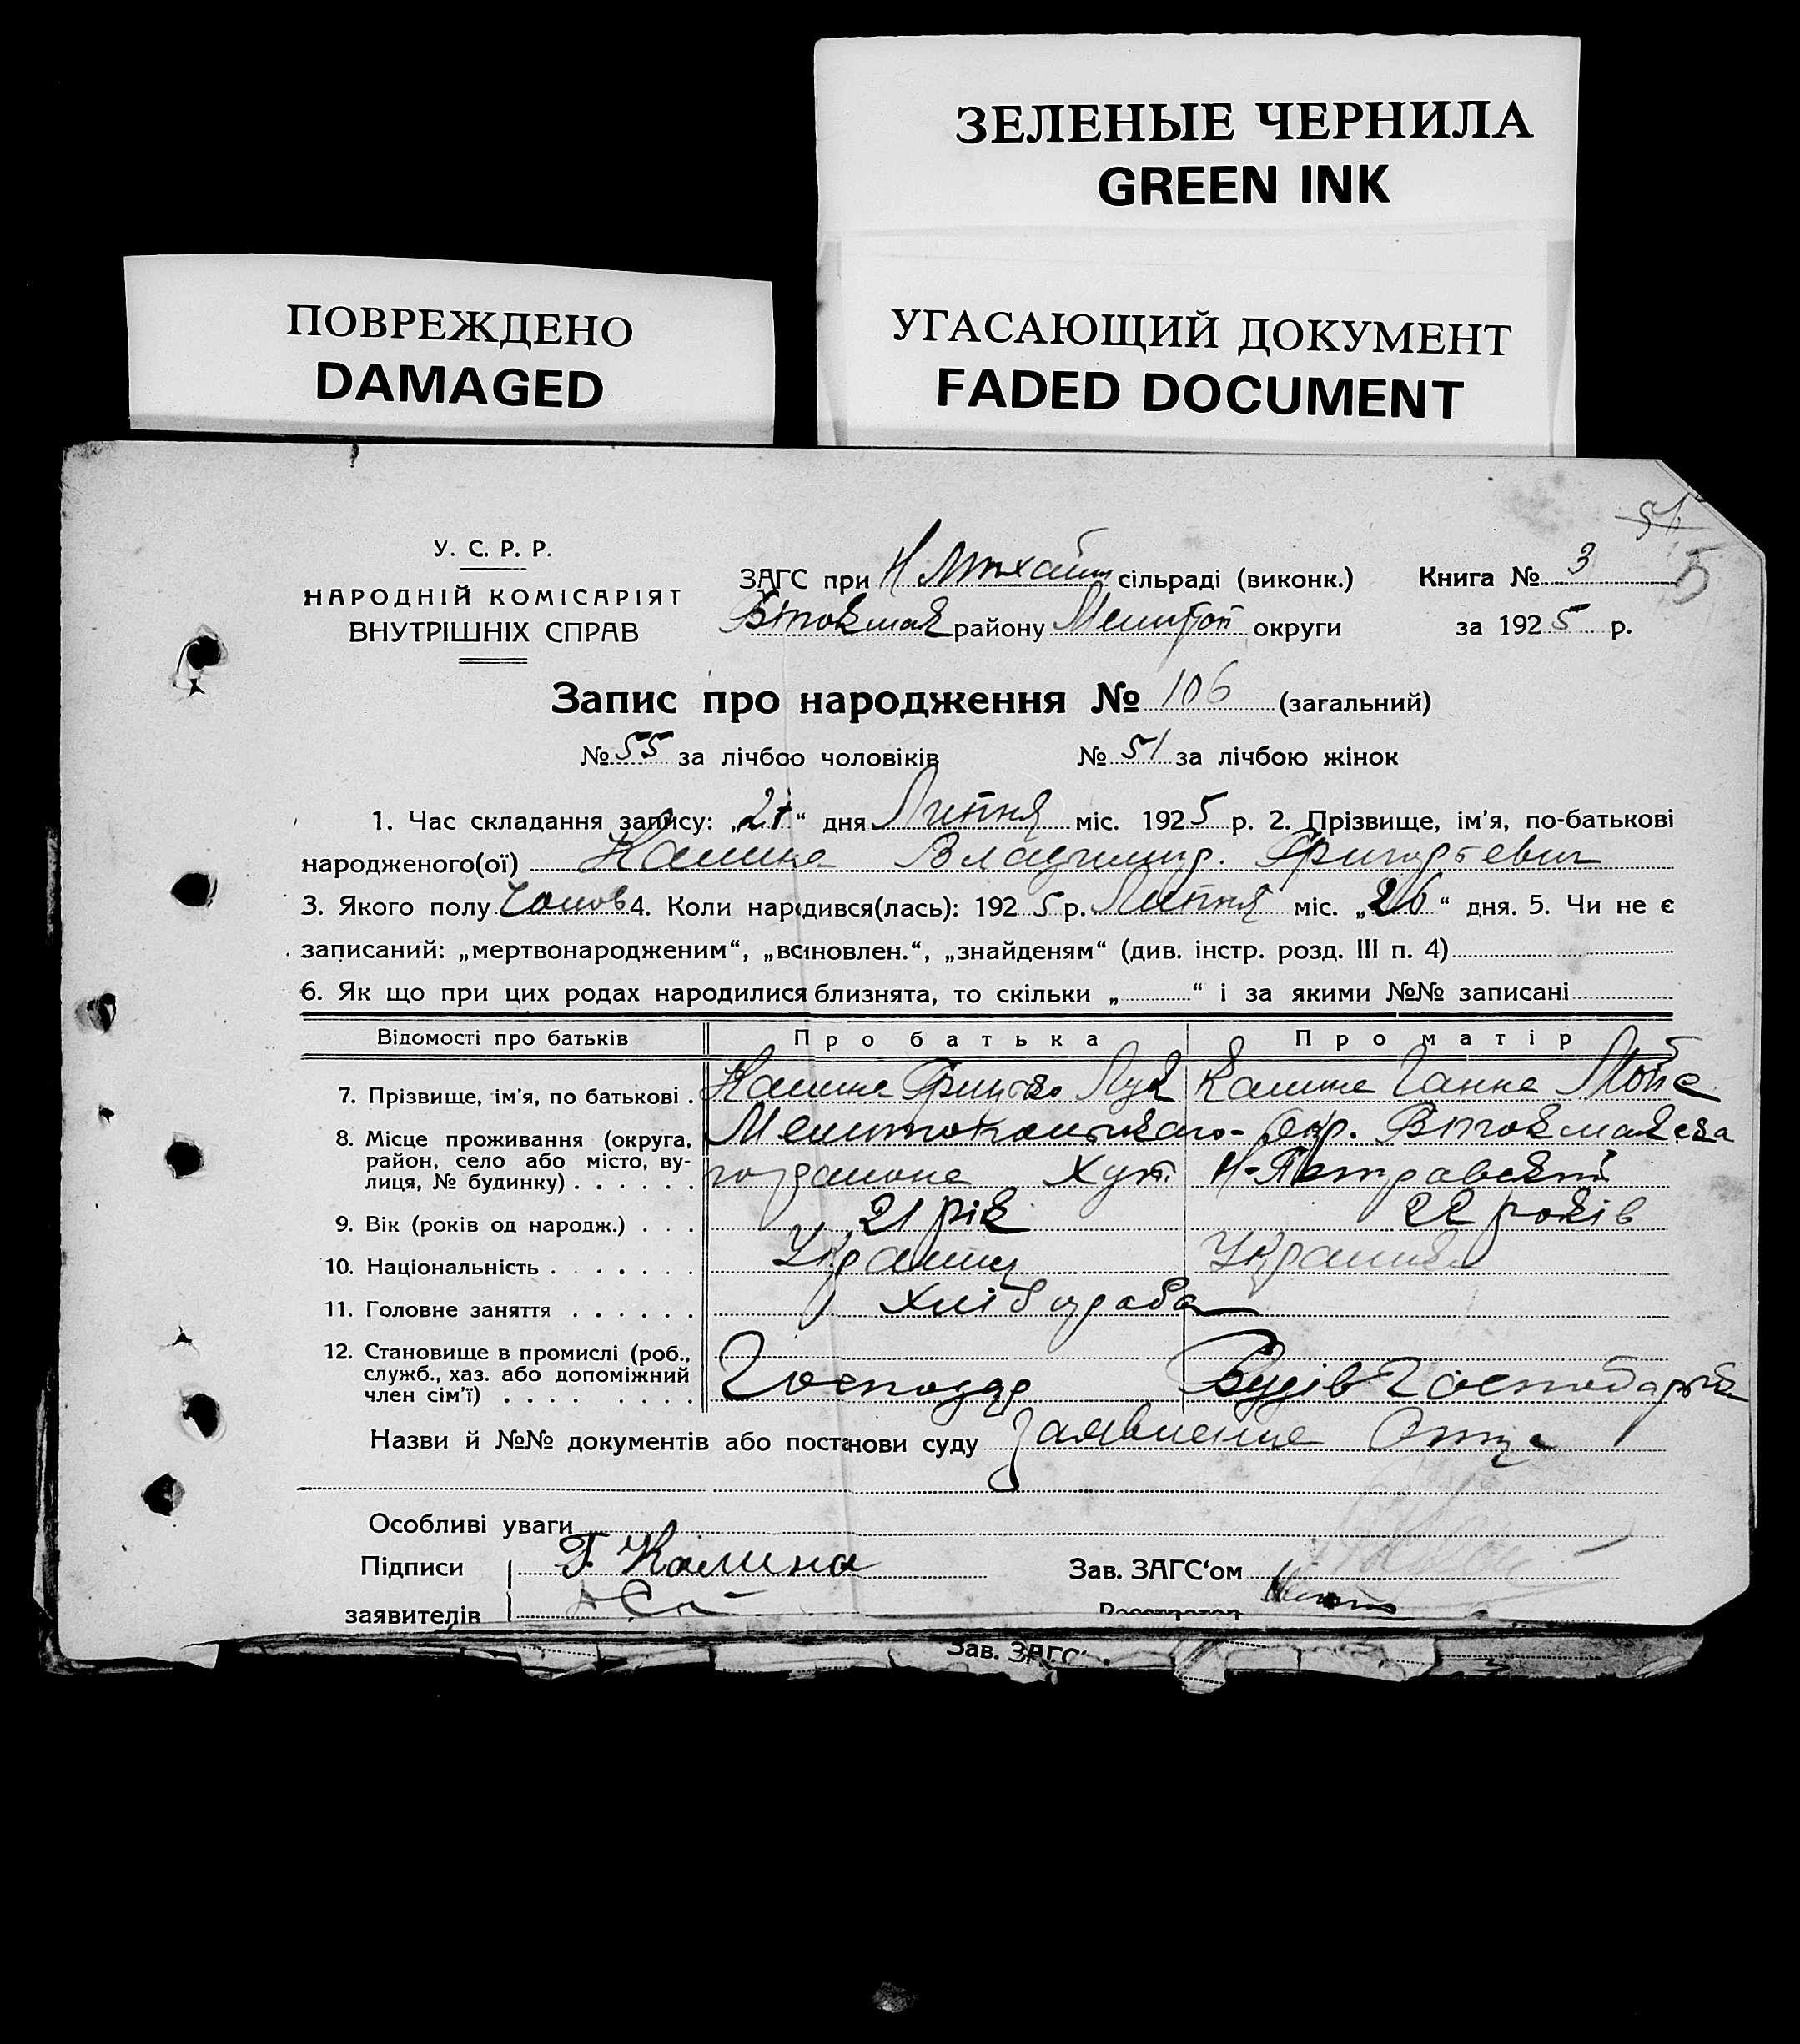 ЗЕЛЕНЫЕ ЧЕРНИЛА
GREEN INK
УГАСАЮЩИЙ ДОКУМЕНТ
FADED DOCUMENT
ПОВРЕЖДЕНО
DAMAGED
51
5
У. С. Р. Р.
НАРОДНІЙ КОМІСАРІЯТ
ВНУТРІШНІХ СПРАВ
ЗАГС при Н Михайл сільраді (виконк.) Книга № 3
Втокмак району Мелитоп округи за 1925 р.
Запис про народження № 106 (загальний)
№ 55 за лічбою чоловіків № 51 за лічбою жінок
1. Час складання запису: „27“ дня Липня міс. 1925 р. 2. Прізвище, ім'я, по-батькові
народженого(ої) Калина Владимир. Григорьевич
3. Якого полу Чолов 4. Коли народився(лась): 1925 р. Липня міс. „26“ дня. 5. Чи не є
записаний: „мертвонародженим“, „всиновлен.“, „знайденям“ (див. інстр. розд. III п. 4)
6. Як що при цих родах народилися близнята, то скільки „ “ і за якими №№ записані
Відомості про батьків Про батька Про матір
7. Прізвище, ім'я, по батькові . Калина Грицько Лук Калина Ганна Мойс
8. Місце проживання (округа, Окр. Втокмакска
район, село або місто, ву-
лиця, № будинку) . . . . . . района Хут Н-Петровский
9. Вік (років од народж.) . . . 21 рік 22 років
10. Національність . . . . . . . Украинц Украинка
11. Головне заняття . . . . . . Хлібороба
12. Становище в промислі (роб.,
служб., хаз. або допоміжний
член сім'ї) . . . . . . . . Господар Господарка
Назви й №№ документів або постанови суду Заявление Отца
Особливі уваги
Підписи Г. Калина Зав. ЗАГС'ом
заявителів Реєстратор
Зав. ЗАГС'